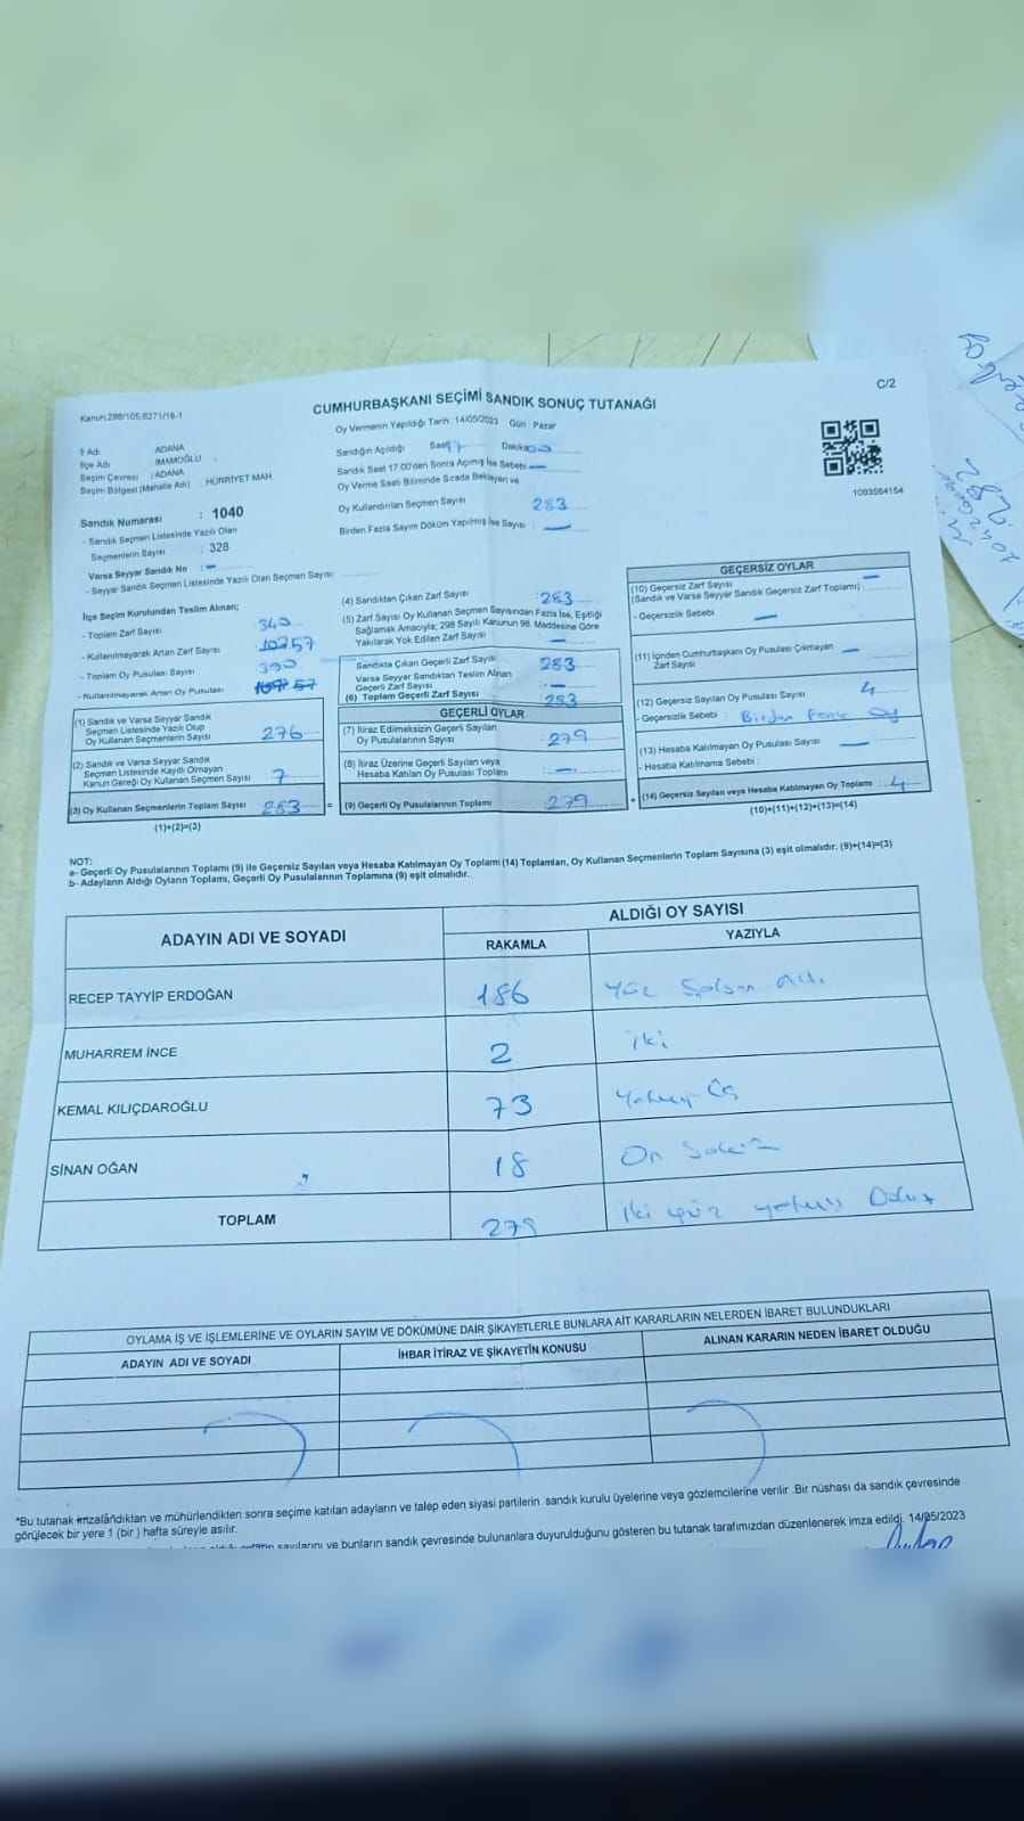 C/2
Kanun:298/105,6271/16-1
CUMHURBAŞKANI SEÇİMİ SANDIK SONUÇ TUTANAĞI
Oy Vermenin Yapıldığı Tarih: 14/05/2023 Gün: Pazar
İl Adı : ADANA
İlçe Adı : İMAMOĞLU
Seçim Çevresi : ADANA
Seçim Bölgesi (Mahalle Adı) : HÜRRİYET MAH
Sandığın Açıldığı Saat Dakika
Sandık Saat 17.00'den Sonra Açılmış İse Sebebi —
Oy Verme Saati Bitiminde Sırada Bekleyen ve
Oy Kullandırılan Seçmen Sayısı 283
Birden Fazla Sayım Döküm Yapılmış İse Sayısı : —
1093564164
Sandık Numarası : 1040
- Sandık Seçmen Listesinde Yazılı Olan
Seçmenlerin Sayısı : 328
Varsa Seyyar Sandık No : —
- Seyyar Sandık Seçmen Listesinde Yazılı Olan Seçmen Sayısı
İlçe Seçim Kurulundan Teslim Alınan;
- Toplam Zarf Sayısı 340
- Kullanılmayarak Artan Zarf Sayısı 57
- Toplam Oy Pusulası Sayısı
- Kullanılmayarak Artan Oy Pusulası 57
(1) Sandık ve Varsa Seyyar Sandık
Seçmen Listesinde Yazılı Olup
Oy Kullanan Seçmenlerin Sayısı 276
(2) Sandık ve Varsa Seyyar Sandık
Seçmen Listesinde Kayıtlı Olmayan
Kanun Gereği Oy Kullanan Seçmen Sayısı 7
(3) Oy Kullanan Seçmenlerin Toplam Sayısı 283 =
(1)+(2)=(3)
(4) Sandıktan Çıkan Zarf Sayısı : 283
(5) Zarf Sayısı Oy Kullanan Seçmen Sayısından Fazla İse, Eşitliği
Sağlamak Amacıyla; 298 Sayılı Kanunun 98. Maddesine Göre
Yakılarak Yok Edilen Zarf Sayısı —
Sandıkta Çıkan Geçerli Zarf Sayısı 283
Varsa Seyyar Sandıktan Teslim Alınan
Geçerli Zarf Sayısı : —
(6) Toplam Geçerli Zarf Sayısı 283
GEÇERLİ OYLAR
(7) İtiraz Edilmeksizin Geçerli Sayılan
Oy Pusulalarının Sayısı 279
(8) İtiraz Üzerine Geçerli Sayılan veya
Hesaba Katılan Oy Pusulası Toplamı : —
(9) Geçerli Oy Pusulalarının Toplamı 279 +
GEÇERSİZ OYLAR
(10) Geçersiz Zarf Sayısı —
(Sandık ve Varsa Seyyar Sandık Geçersiz Zarf Toplamı)
- Geçersizlik Sebebi : —
(11) İçinden Cumhurbaşkanı Oy Pusulası Çıkmayan —
Zarf Sayısı
(12) Geçersiz Sayılan Oy Pusulası Sayısı 4
- Geçersizlik Sebebi : Birden Fazla Oy
(13) Hesaba Katılmayan Oy Pusulası Sayısı —
- Hesaba Katılmama Sebebi :
(14) Geçersiz Sayılan veya Hesaba Katılmayan Oy Toplamı : 4
(10)+(11)+(12)+(13)=(14)
NOT:
a- Geçerli Oy Pusulalarının Toplamı (9) ile Geçersiz Sayılan veya Hesaba Katılmayan Oy Toplamı (14) Toplamları, Oy Kullanan Seçmenlerin Toplam Sayısına (3) eşit olmalıdır. (9)+(14)=(3)
b- Adayların Aldığı Oyların Toplamı, Geçerli Oy Pusulalarının Toplamına (9) eşit olmalıdır.
ADAYIN ADI VE SOYADI
ALDIĞI OY SAYISI
RAKAMLA YAZIYLA
RECEP TAYYİP ERDOĞAN 186 Yüz Seksen Altı
MUHARREM İNCE 2 iki
KEMAL KILIÇDAROĞLU 73 Yetmiş Üç
SİNAN OĞAN 18 On Sekiz
TOPLAM 279 iki yüz yetmiş Dokuz
OYLAMA İŞ VE İŞLEMLERİNE VE OYLARIN SAYIM VE DÖKÜMÜNE DAİR ŞİKAYETLERLE BUNLARA AİT KARARLARIN NELERDEN İBARET BULUNDUKLARI
ADAYIN ADI VE SOYADI İHBAR İTİRAZ VE ŞİKAYETİN KONUSU ALINAN KARARIN NEDEN İBARET OLDUĞU
*Bu tutanak imzalandıktan ve mühürlendikten sonra seçime katılan adayların ve talep eden siyasi partilerin sandık kurulu üyelerine veya gözlemcilerine verilir. Bir nüshası da sandık çevresinde
görülecek bir yere 1 (bir) hafta süreyle asılır.
sayılarını ve bunların sandık çevresinde bulunanlara duyurulduğunu gösteren bu tutanak tarafımızdan düzenlenerek imza edildi. 14/05/2023